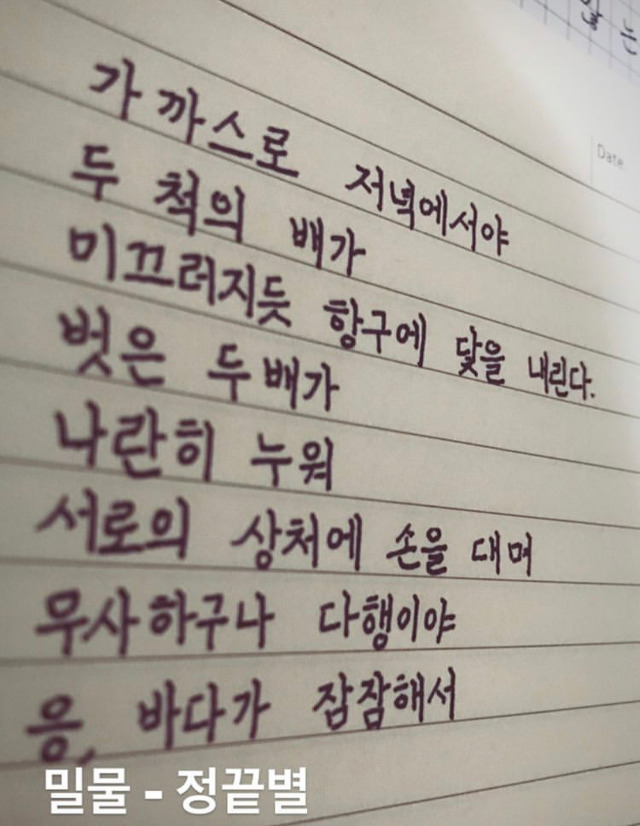 Date.
가까스로 저녁에서야
두 척의 배가
미끄러지듯 항구에 닻을 내린다.
벗은 두 배가
나란히 누워
서로의 상처에 손을 대며
무사하구나 다행이야
응, 바다가 잠잠해서
밀물 - 정끝별